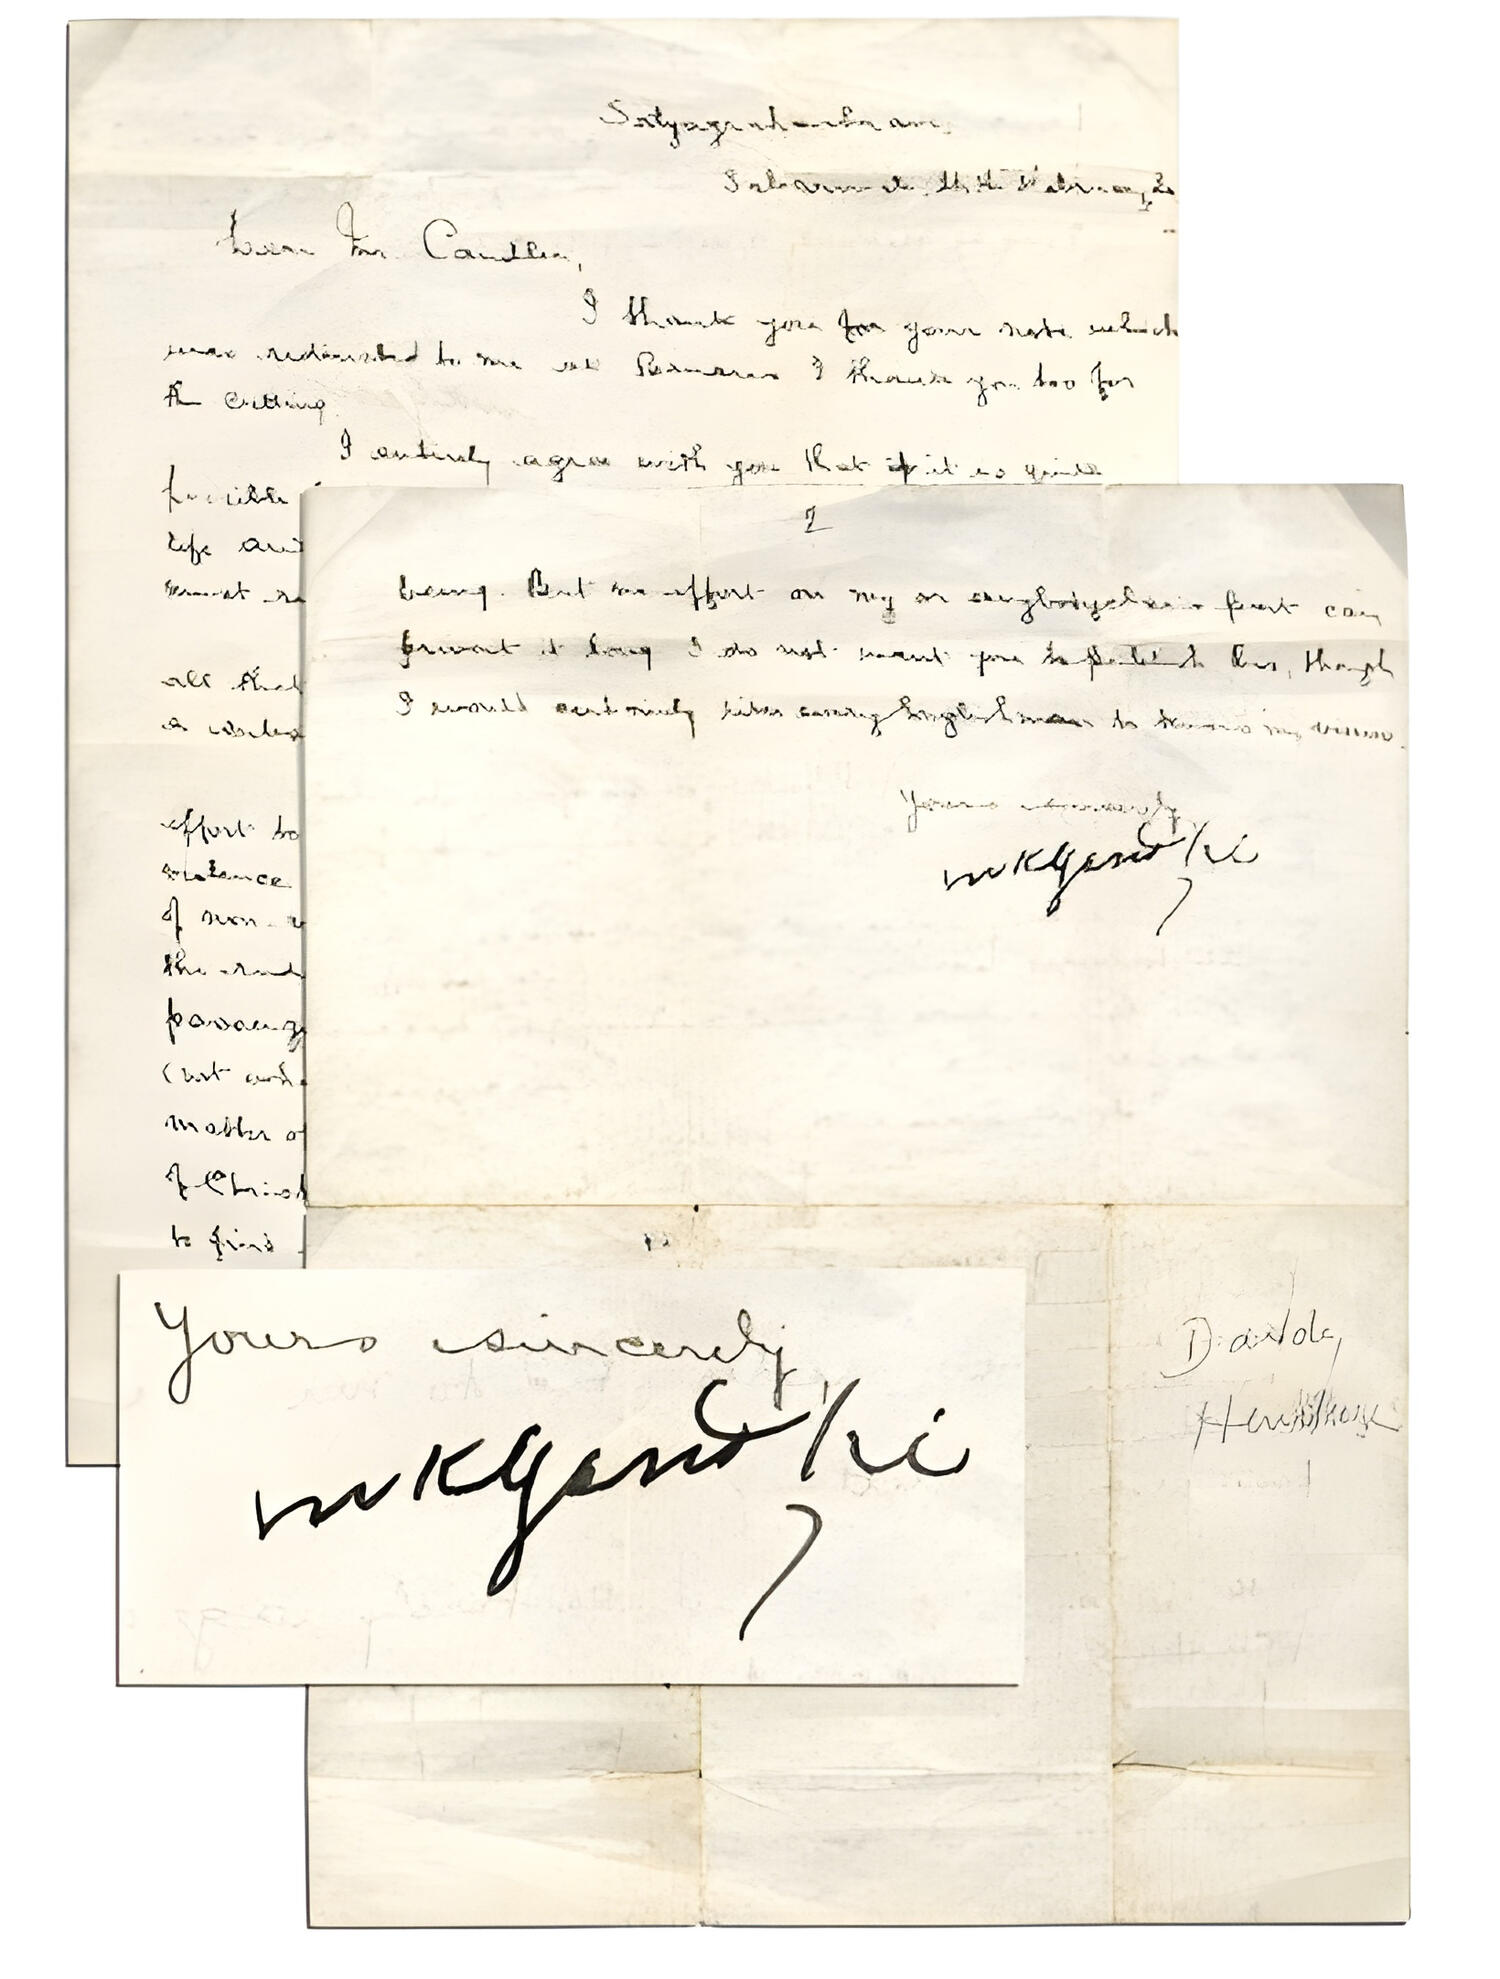 Satyagrahashram,
Sabarmati,
Dear Mr. Candler,
I thank you for your note which
was redirected to me at Benares I thank you too for
the cutting
I entirely agree with you that if it is quite
possible
life and
must
all that
a
effort to
violence
of non-
the
passeng
(not
matter of
of Christ
to find
2
being. But no effort on my or anybody else's part can
prevent it long I do not want you to publish this, though
I would certainly like every Englishman to know my views.
Yours sincerely
MKGandhi
Yours sincerely
MKGandhi